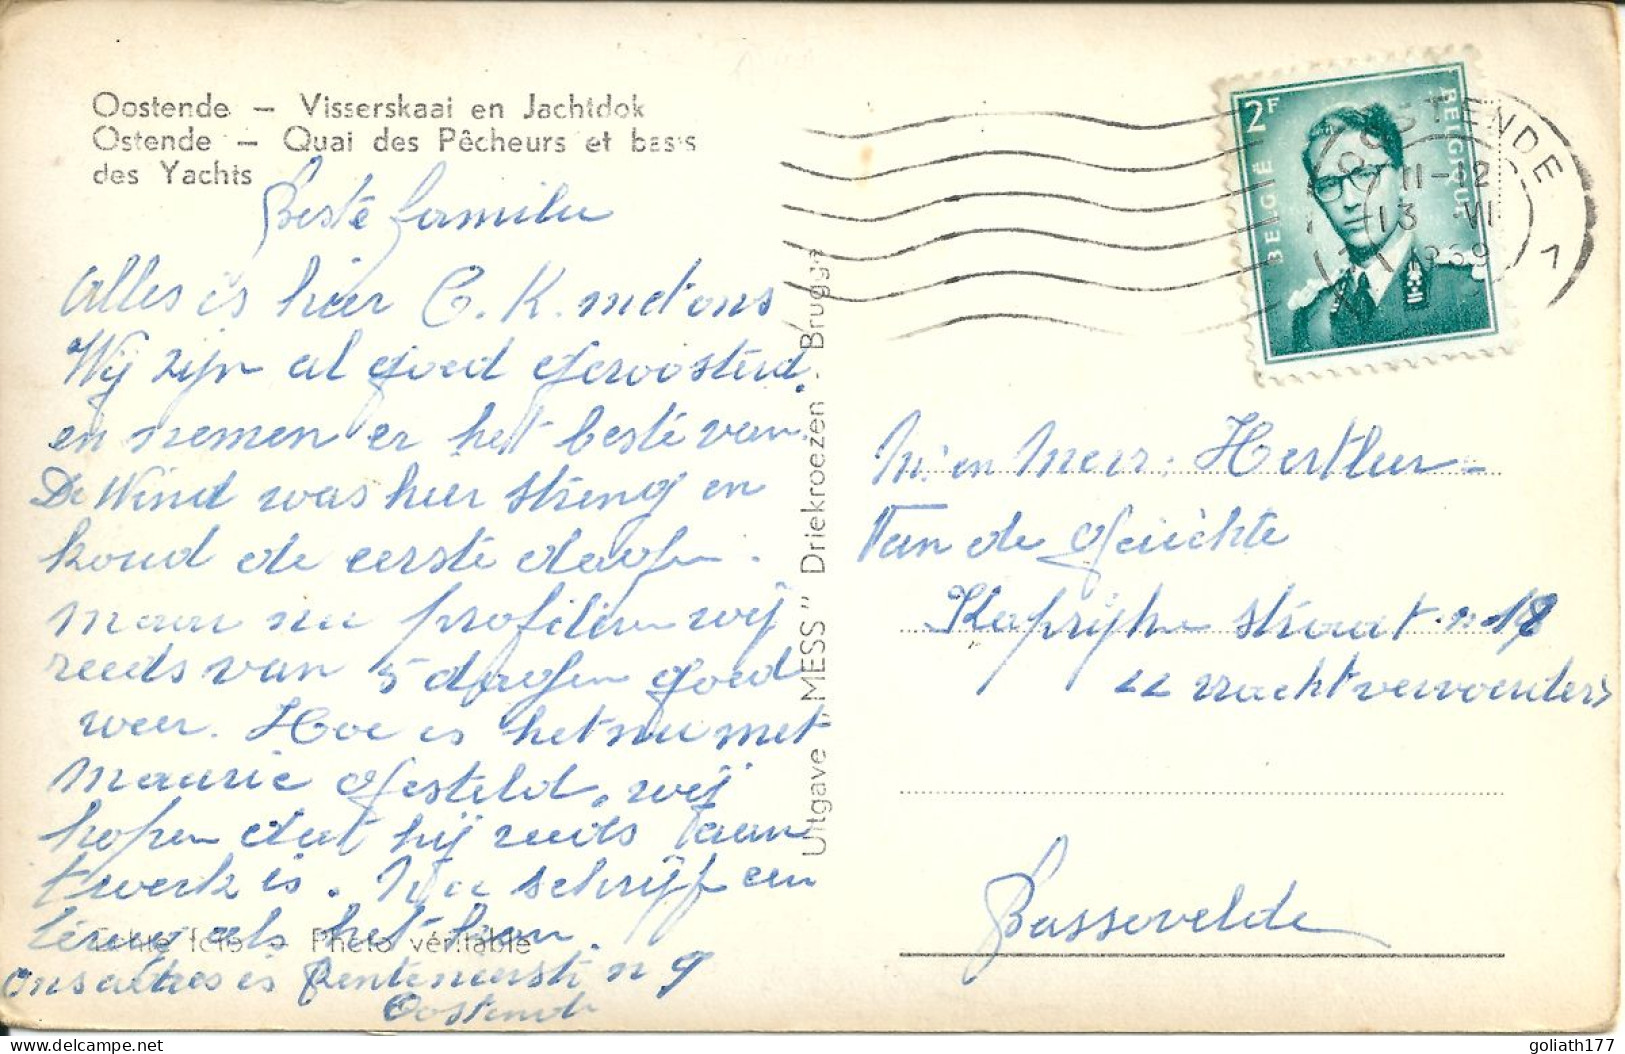 Oostende — Visserskaai en Jachtdok
Ostende — Quai des Pêcheurs et bassis
des Yachts
Beste familie
Alles is hier O. K. met ons
Wij zijn al goed geroosterd.
en nemen er het beste van.
De Wind was hier streng en
koud de eerste dagen.
maar nu profiteren wij
reeds van 5 dagen goed
weer. Hoe is het nu met
Maurice gesteld. wij
hopen dat hij reeds aan
t werk is. Nu schrijf een
terug als het kan.
Echte foto — Photo véritable
Ons adres is n 9
Oostende
Uitgave „MESS” Driekroezen - Brugge
2F
BELGIË
BELGIQUE
OOSTENDE
11-12
13 VI
1969
1
M. en Mevr.
Van de
straat n 18
<< vrachtvervoerders
Bassevelde
goliath177
delcampe.net